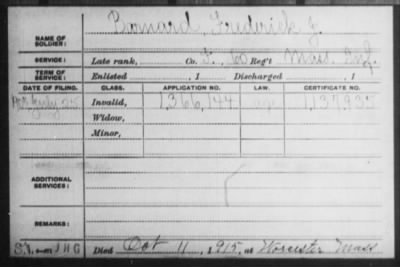 NAME OF SOLDIER: Barnard, Frederick J.
SERVICE: Late rank, Co. F, 60 Reg't Mass. Inf.
TERM OF SERVICE: Enlisted , 1 Discharged , 1
DATE OF FILING. CLASS. APPLICATION NO. LAW. CERTIFICATE NO.
July 25 Invalid, 1,366,144 1,137,935
Widow,
Minor,
ADDITIONAL SERVICES:
REMARKS:
Died Oct 11, 1915, at Worcester Mass